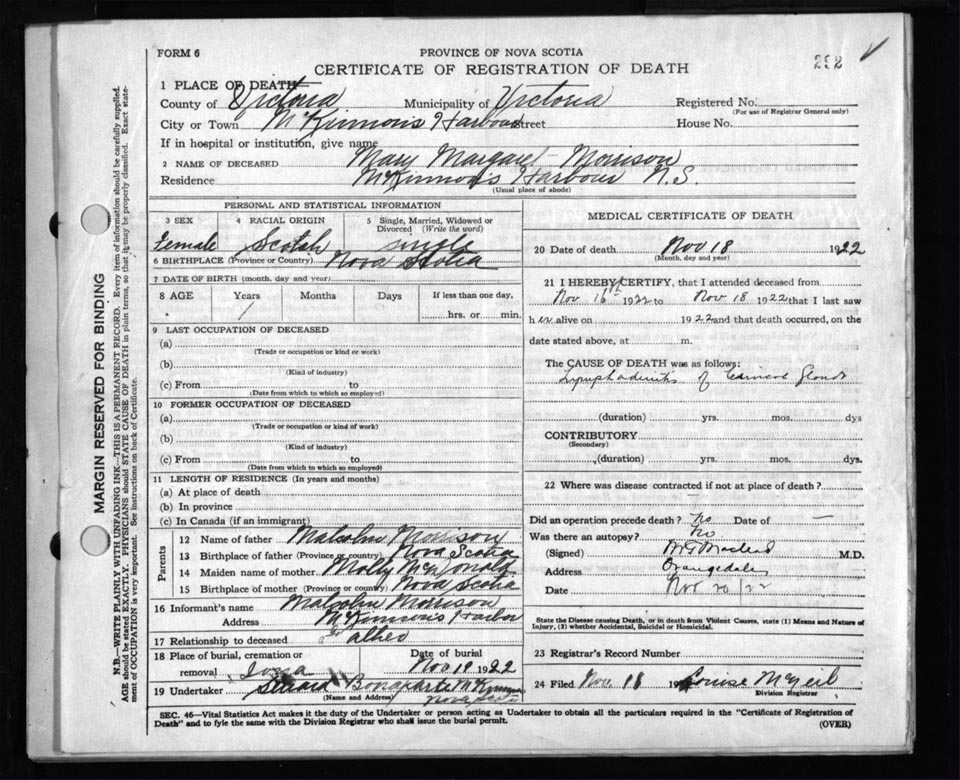 FORM 6
PROVINCE OF NOVA SCOTIA
292
CERTIFICATE OF REGISTRATION OF DEATH
1 PLACE OF DEATH
County of Victoria Municipality of Victoria Registered No.
(For use of Registrar General only)
City or Town McKinnon's Harbour Street House No.
If in hospital or institution, give name
2 NAME OF DECEASED Mary Margaret Morrison
Residence McKinnon's Harbour N.S.
(Usual place of abode)
PERSONAL AND STATISTICAL INFORMATION
3 SEX 4 RACIAL ORIGIN 5 Single, Married, Widowed or Divorced (Write the word)
Female Scotch single
6 BIRTHPLACE (Province or Country) Nova Scotia
7 DATE OF BIRTH (month, day and year)
8 AGE Years Months Days If less than one day,
1
hrs. or min.
9 LAST OCCUPATION OF DECEASED
(a)
(Trade or occupation or kind or work)
(b)
(Kind of industry)
(c) From to
(Date from which to which so employed)
10 FORMER OCCUPATION OF DECEASED
(a)
(Trade or occupation or kind of work)
(b)
(Kind of industry)
(c) From to
(Date from which to which so employed)
11 LENGTH OF RESIDENCE (In years and months)
(a) At place of death
(b) In province
(c) In Canada (if an immigrant)
Parents
12 Name of father Malcolm Morrison
13 Birthplace of father (Province or country) Nova Scotia
14 Maiden name of mother Molly McDonald
15 Birthplace of mother (Province or country) Nova Scotia
16 Informant's name Malcolm Morrison
Address McKinnon's Harbor
17 Relationship to deceased Father
18 Place of burial, cremation or removal Iona
Date of burial Nov 19 1922
19 Undertaker Bonaparte McKinnons
(Name and Address) Nova Scotia
MEDICAL CERTIFICATE OF DEATH
20 Date of death Nov 18 1922
(Month, day and year)
21 I HEREBY CERTIFY, that I attended deceased from
Nov 16th 1922 to Nov 18 1922 that I last saw
her alive on 1922 and that death occurred, on the
date stated above, at m.
The CAUSE OF DEATH was as follows:
Lymphadenitis of Cervical Glands
(duration) yrs. mos. dys
CONTRIBUTORY
(Secondary)
(duration) yrs. mos. dys.
22 Where was disease contracted if not at place of death?
Did an operation precede death? No Date of —
Was there an autopsy? No
(Signed) Macleod M.D.
Address Orangedale
Date Nov 20/22
State the Disease causing Death, or in death from Violent Causes, state (1) Means and Nature of
Injury, (2) whether Accidental, Suicidal or Homicidal.
23 Registrar's Record Number
24 Filed Nov. 18 19 Louise McNeil
Division Registrar
SEC. 46—Vital Statistics Act makes it the duty of the Undertaker or person acting as Undertaker to obtain all the particulars required in the "Certificate of Registration of
Death" and to fyle the same with the Division Registrar who shall issue the burial permit.
(OVER)
MARGIN RESERVED FOR BINDING
N.B.—WRITE PLAINLY WITH UNFADING INK—THIS IS A PERMANENT RECORD. Every item of information should be carefully supplied.
AGE should be stated EXACTLY. PHYSICIANS should STATE CAUSE OF DEATH in plain terms, so that it may be properly classified. Exact state-
ment of OCCUPATION is very important. See instructions on back of Certificate.